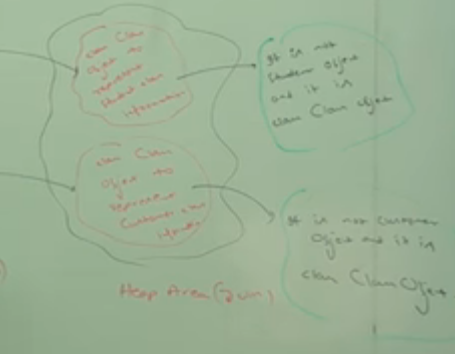 class Class
object to
represent
Student class
information
It is not
Student Object
and it is
class Class Object
class Class
Object to
represent
Customer class
information
It is not Customer
Object and it is
class Class Object
Heap Area (JVM)